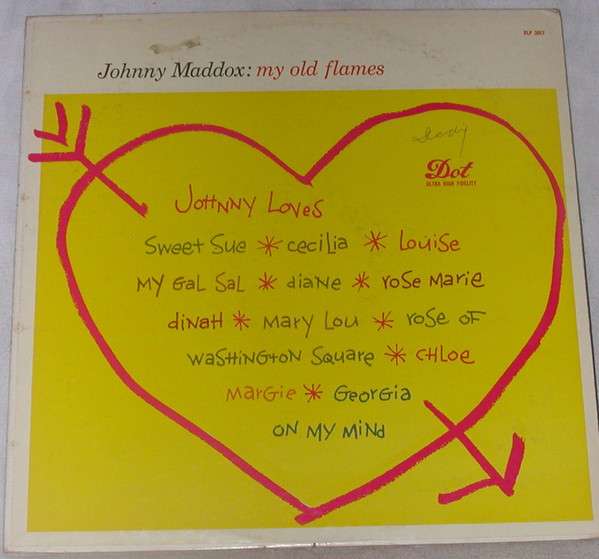 Johnny Maddox: my old flames
Dot
ULTRA HIGH FIDELITY
JOHNNY LOVES
SWEET SUE * CECILIA * LOUISE
MY GAL SAL * DIANE * ROSE MARIE
DINAH * MARY LOU * ROSE OF
WASHINGTON SQUARE * CHLOE
MARGIE * GEORGIA
ON MY MIND